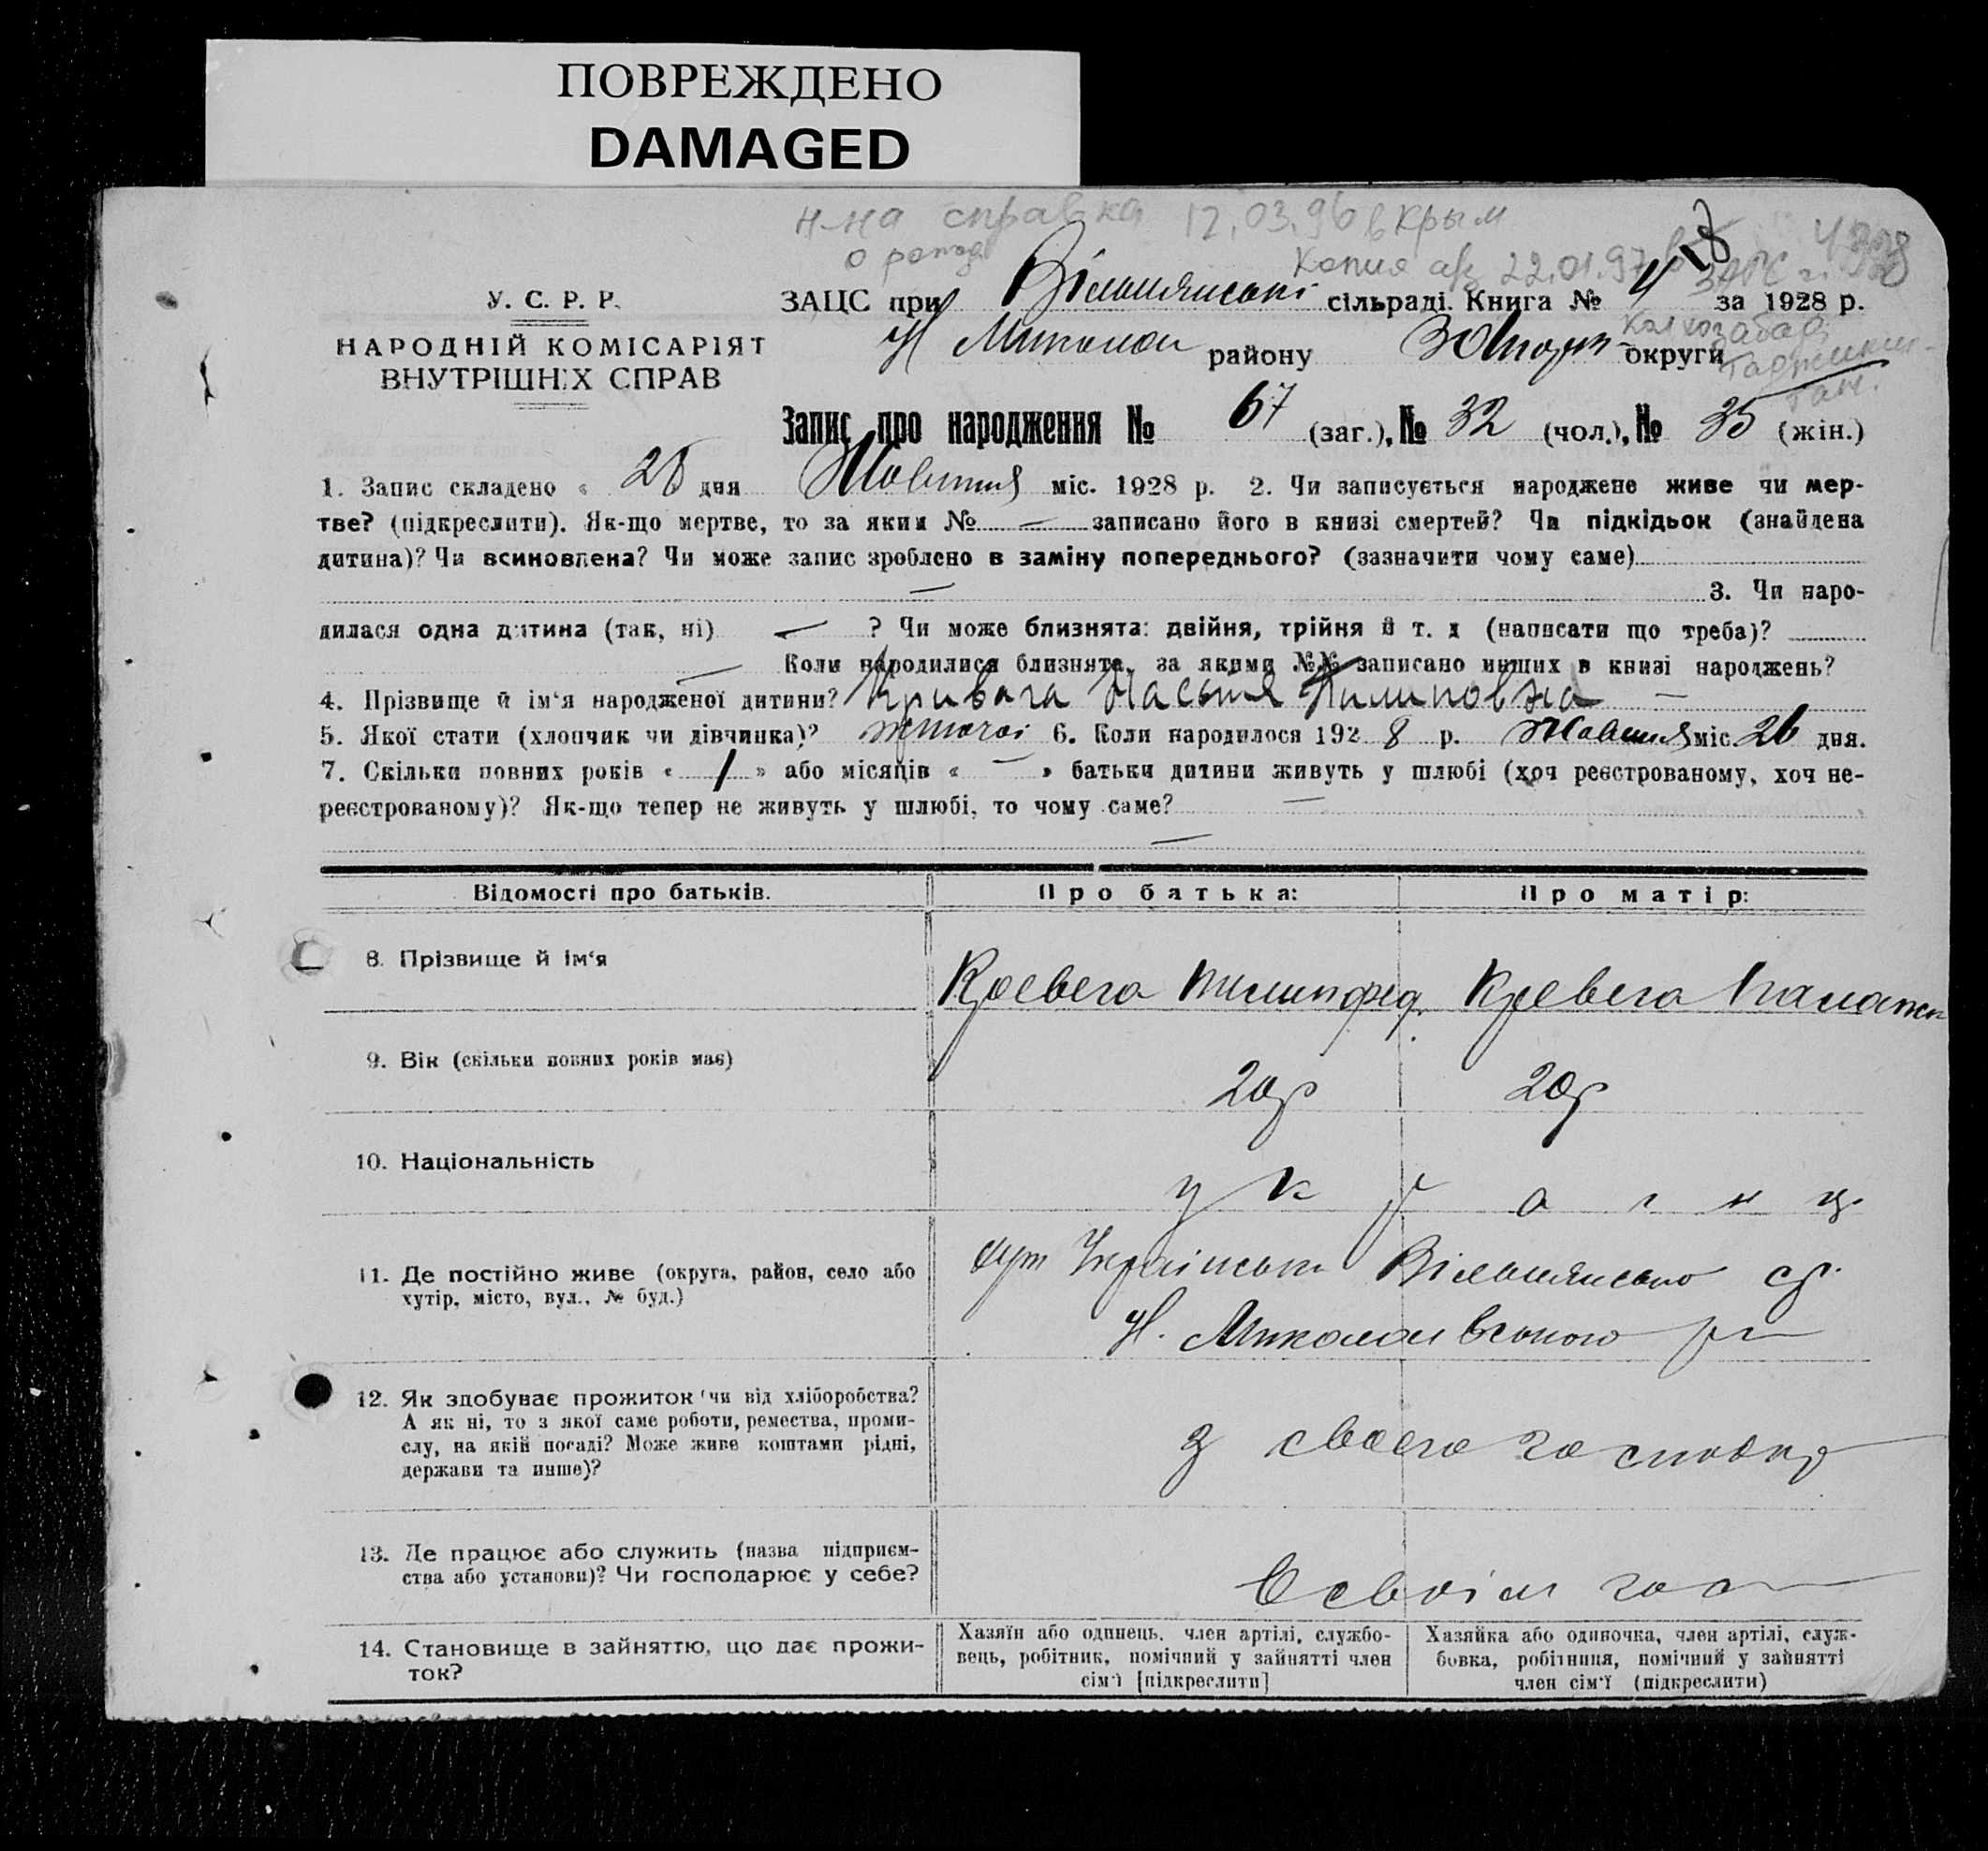 ПОВРЕЖДЕНО
DAMAGED
справка 12.03.96 в Крым
Копия 22.01.97
У. С. Р. Р.
НАРОДНІЙ КОМІСАРІЯТ
ВНУТРІШНІХ СПРАВ
ЗАЦС при Вільшянські сільраді. Книга № 4 за 1928 р.
Н Миколаї району округи
Запис про народження № 67 (заг.), № 32 (чол.), № 35 (жін.)
1. Запис складено « 28 дня Жовтня міс. 1928 р. 2. Чи записується народжене живе чи мер-
тве? (підкреслити). Як-що мертве, то за яким № — записано його в книзі смертей? Чи підкідьок (знайдена
дитина)? Чи всиновлена? Чи може запис зроблено в заміну попереднього? (зазначити чому саме)
— 3. Чи наро-
дилася одна дитина (так, ні) — ? Чи може близнята: двійня, трійня й т. д (написати що треба)?
— Коли народилися близнята, за якими №№ записано инших в книзі народжень?
4. Прізвище й ім‘я народженої дитини? Кривега Насьтя Пилиповна —
5. Якої стати (хлопчик чи дівчинка)? жіночої 6. Коли народилося 192 8 р. Жовтня міс. 26 дня.
7. Скільки повних років « 1 » або місяців « — » батьки дитини живуть у шлюбі (хоч реєстрованому, хоч не-
реєстрованому)? Як-що тепер не живуть у шлюбі, то чому саме? —
—
Відомості про батьків. Про батька: Про матір:
8. Прізвище й ім‘я Кревега Пилип Фед. Кревега Палажк
9. Вік (скільки повних років має) 20 р 20 р
10. Національність украінц.
11. Де постійно живе (округа, район, село або
хутір, місто, вул., № буд.)
хут Українськи Вільшянсько ср.
Н. Миколаівського р—
12. Як здобуває прожиток (чи від хліборобства?
А як ні, то з якої саме роботи, ремества, проми-
слу, на якій посаді? Може живе коштами рідні,
держави та инше)?
з своего господар
13. Де працює або служить (назва підприєм-
ства або установи)? Чи господарює у себе?
В своім гос—
14. Становище в зайняттю, що дає прожи-
ток?
Хазяїн або одинець, член артілі, службо-
вець, робітник, помічний у зайнятті член
сім‘ї [підкреслити]
Хазяйка або одиночка, член артілі, служ-
бовка, робітниця, помічний у зайнятті
член сім‘ї (підкреслити)